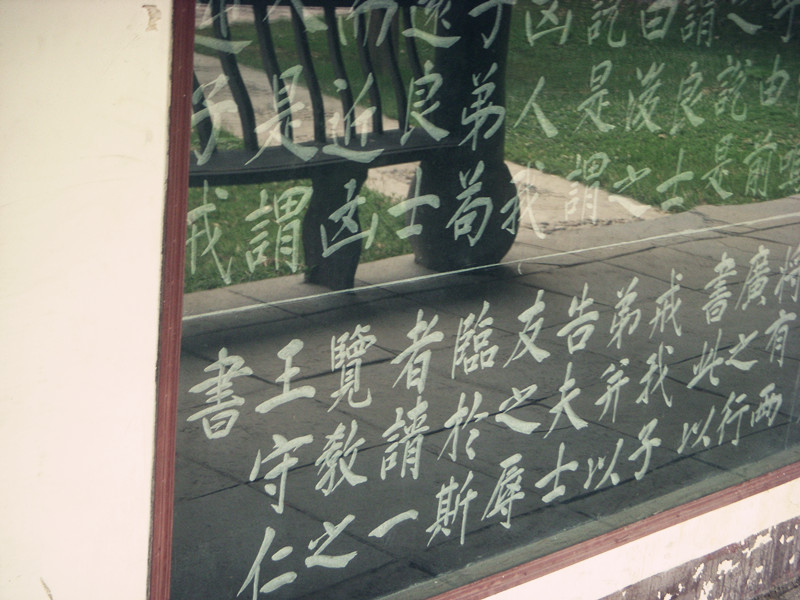 嗚
乎由前
之說是
謂良士
由後之
說是謂
凶人我
子弟苟
遠良士
而近凶
人是謂
逆子戒
將有兩
廣之行
書此以
戒我子
弟并以
告夫士
友之辱
臨於斯
者請一
覽教之
王守仁
書